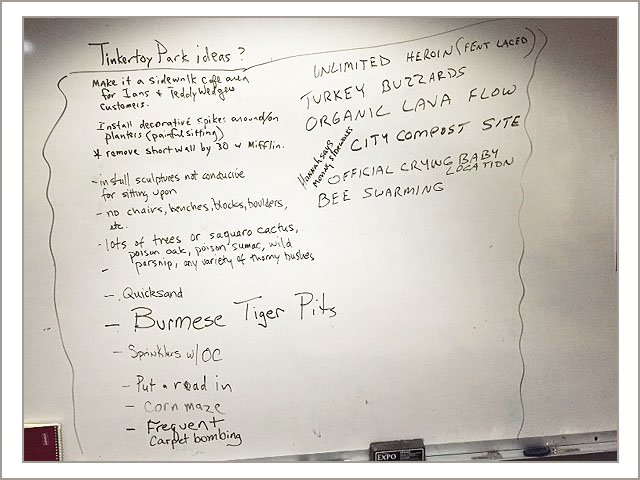 Tinkertoy Park ideas?
Make it a sidewalk cafe area
for Ians & Teddywedgers
customers.
Install decorative spikes around/on
planters (painful sitting)
* remove short wall by 30 W Mifflin.
- install sculptures not conducive
for sitting upon
- no chairs, benches, blocks, boulders,
etc.
- lots of trees or saguaro cactus,
poison oak, poison sumac, wild
- parsnip, any variety of thorny bushes
- Quicksand
- Burmese Tiger Pits
- Sprinklers w/ OC
- Put a road in
- Corn maze
- Frequent
Carpet bombing
UNLIMITED HEROIN (FENT LACED)
TURKEY BUZZARDS
ORGANIC LAVA FLOW
CITY COMPOST SITE
Hannah says
OFFICIAL CRYING BABY
LOCATION
BEE SWARMING
EXPO